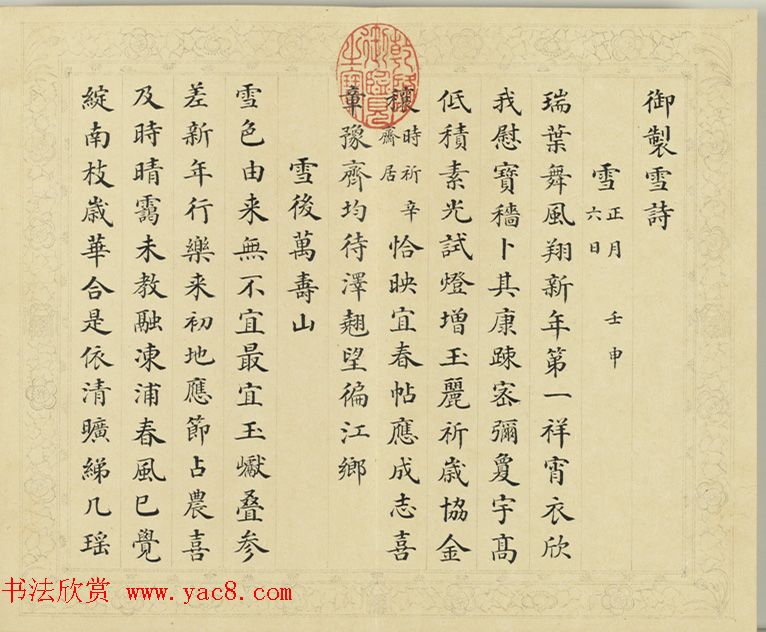 御製雪詩
雪 正月六日 壬申
瑞葉舞風翔新年第一祥宵衣欣
我慰寶穡卜其康疎密彌夐宇高
低積素光試燈增玉麗祈歳協金
穰 時祈辛齋居 恰映宜春帖應成志喜
章豫齊均待澤翹望徧江鄉
雪後萬壽山
雪色由来無不宜最宜玉巘叠參
差新年行樂来初地應節占農喜
及時晴靄未教融凍浦春風已覺
綻南枝歳華合是依清曠綈几瑶
乾隆御覽之寶
书法欣赏 www.yac8.com